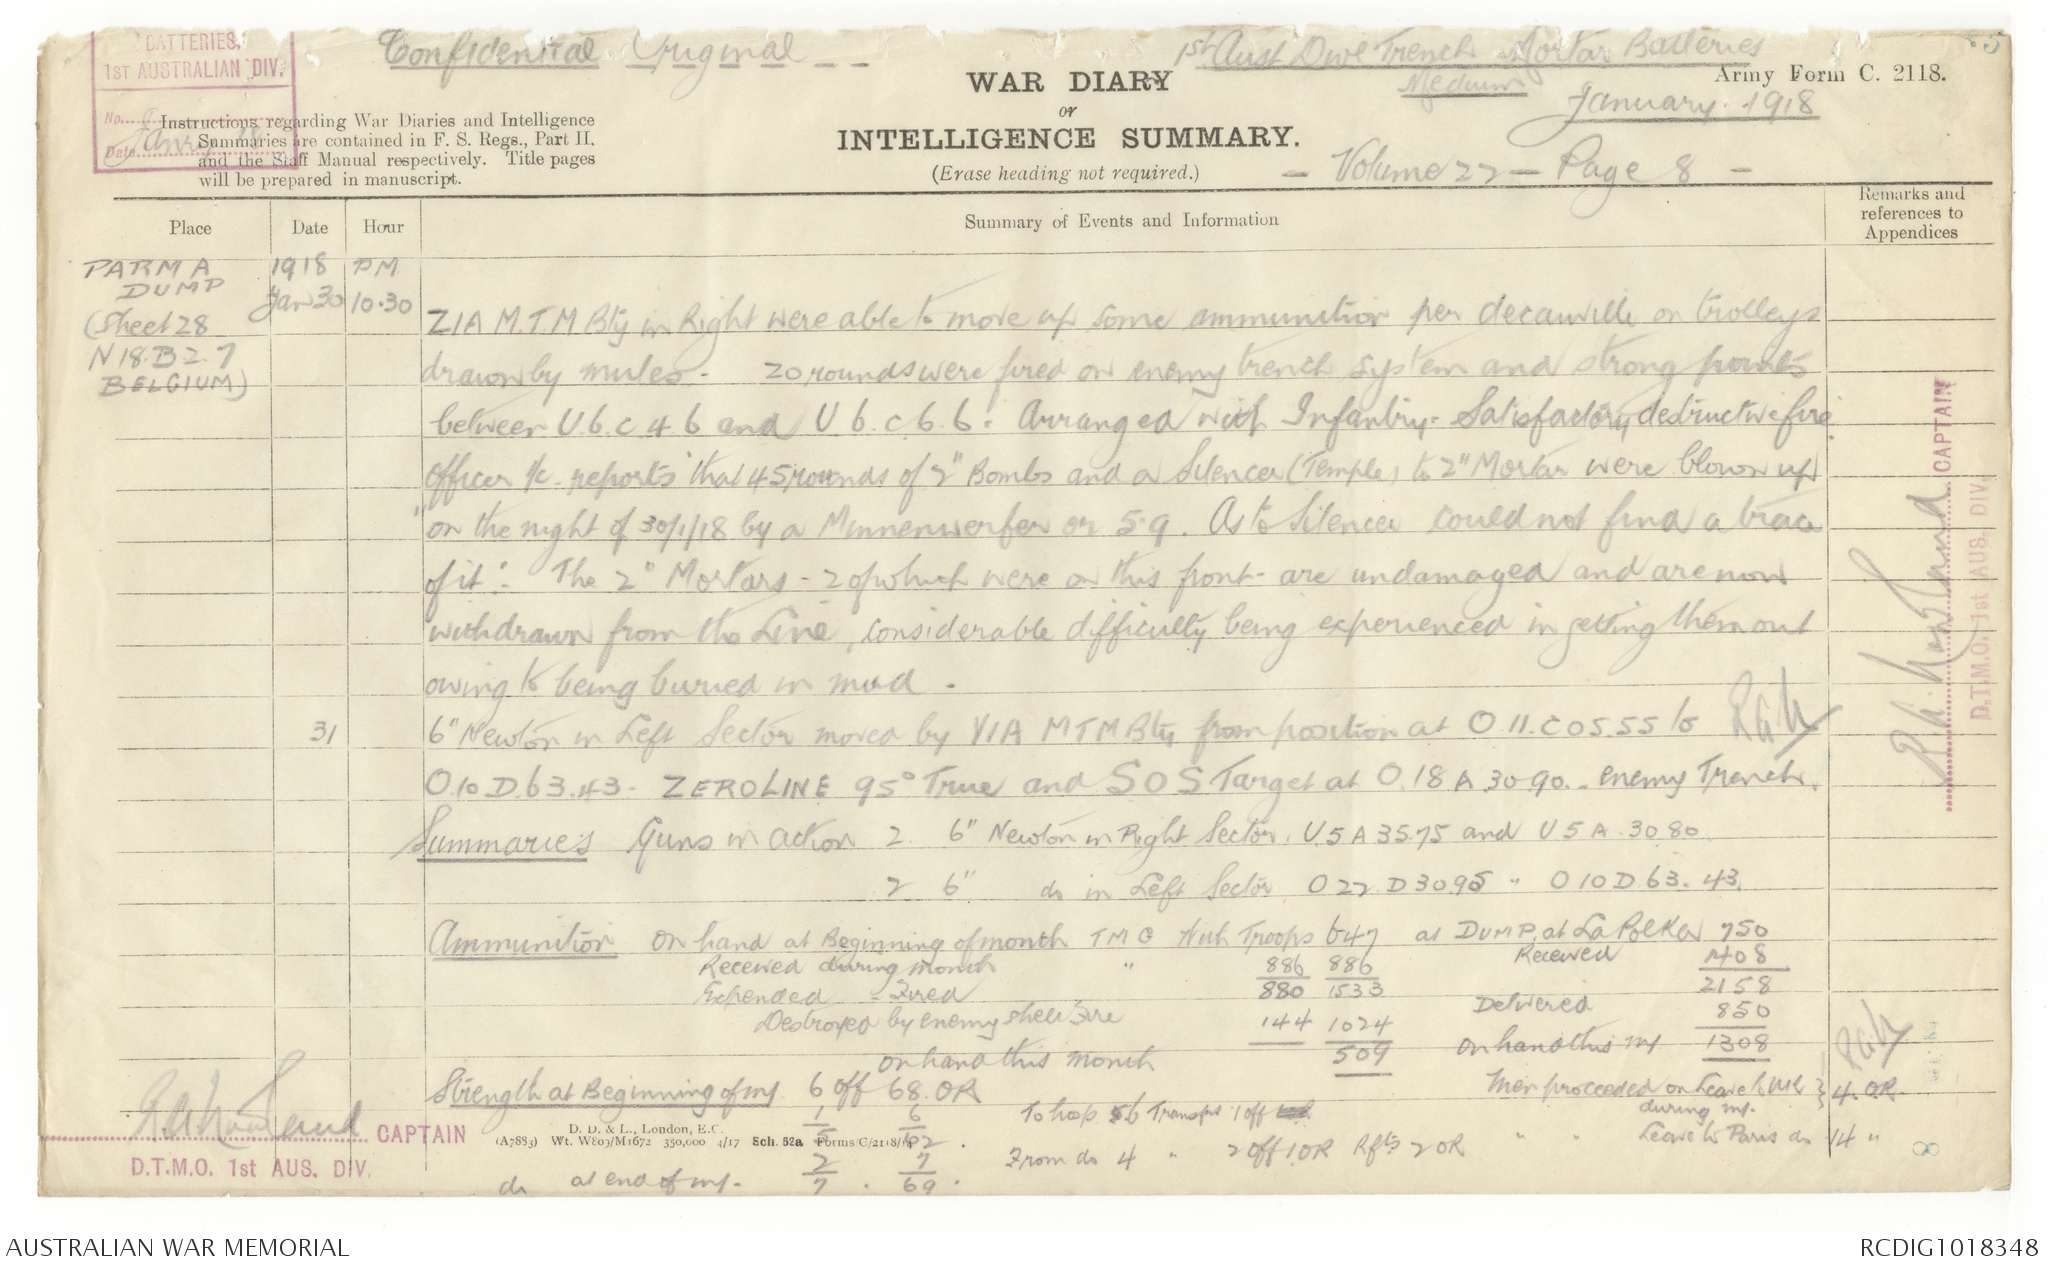 BATTERIES,
1ST AUSTRALIAN DIV.
No.
Date
Confidential Original - -
1st Aust Divl Trench Mortar Batteries
Medium
WAR DIARY
or
INTELLIGENCE SUMMARY.
(Erase heading not required.)
Army Form C. 2118.
January. 1918
- Volume 22 - Page 8 -
Instructions regarding War Diaries and Intelligence
Summaries are contained in F. S. Regs., Part II.
and the Staff Manual respectively. Title pages
will be prepared in manuscript.
Place
Date
Hour
Summary of Events and Information
Remarks and
references to
Appendices
PARMA
DUMP
(Sheet 28
N 18.B 2.7
BELGIUM)
1918
Jan 30
PM
10.30
Z1A M.T M Bty in Right were able to move up some ammunition per decauville on trolleys
drawn by mules. 20 rounds were fired on enemy trench system and strong points
between U.6.c.4.6 and U 6.c.6.6. Arranged with Infantry. Satisfactory destructive fire.
Officer i/c reports "that 45 rounds of 2" Bombs and a Silencer (Temple) to 2" Mortar were blown up
"on the night of 30/1/18 by a Minnenwerfer or 5.9. As to Silencer could not find a trace
of it". The 2" Mortars - 2 of which were on this front - are undamaged and are now
withdrawn from the Line, considerable difficulty being experienced in getting them out
owing to being buried in mud.
31
6" Newton in Left Sector moved by Y1A MTM Bty from position at O 11.C 05.55 to
O.10 D.63.43. ZERO LINE 95° True and SOS Target at O.18 A 30 90. enemy Trench.
Summaries Guns in action 2 6" Newton in Right Sector. U.5 A 35.75 and U 5 A. 30 80
2 6" do in Left Sector O 22 D 30 95 " O 10 D 63. 43.
Ammunition On hand at Beginning of month TMG with Troops 647 at DUMP at La Polka 750
Received during month " 886 886 Received 1408
Expended - Fired 880 1533 2158
Destroyed by enemy shell Fire 144 1024 Delivered 850
On hand this month 509 On hand this m/ 1308
Strength at Beginning of m/ 6 Off 68. OR
1 6
5 62
To hosp & Transfs 1 off
Men proceeded on Leave to UK } 4. OR.
during m/.
Leave to Paris do 14 "
2 7
From do 4 " 2 Off 1 OR Rfts 2 OR
do at end of m/. 7 . 69.
CAPTAIN
D.T.M.O. 1st AUS. DIV.
CAPTAIN
D.T.M.O. 1st AUS. DIV.
D. D. & L., London, E.C.
(A7883) Wt. W809/M1672 350,000 4/17 Sch. 52a Forms/C/2118/14
8
AUSTRALIAN WAR MEMORIAL
RCDIG1018348